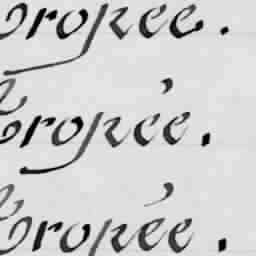 ropée.
ropée.
ropée.